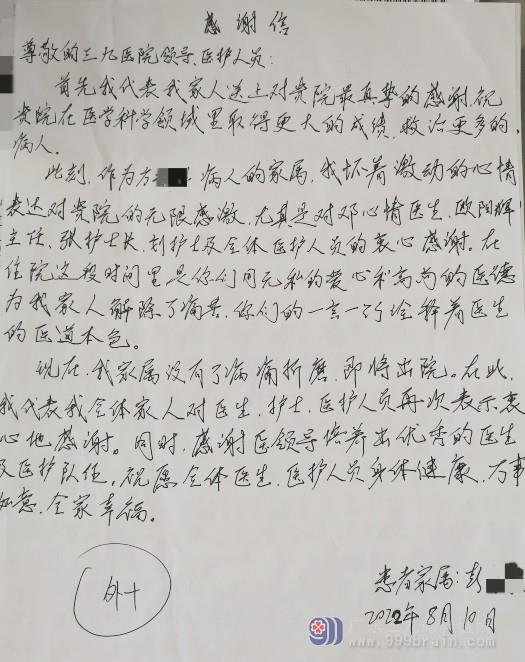 感谢信
尊敬的三九医院领导、医护人员:
首先我代表我家人送上对贵院最真挚的感谢,祝
贵院在医学科学领域里取得更大的成绩,救治更多的,
病人。
此刻,作为方 病人的家属,我怀着激动的心情
表达对贵院的无限感激,尤其是对邓心情医生,欧阳辉
主任,张护士长,刘护士及全体医护人员的衷心感谢。在
住院这段时间里是你们用无私的爱心和高尚的医德
为我家人解除了痛苦,你们的一言一行诠释着医生
的医道本色。
现在,我家属没有了病痛折磨,即将出院。在此,
我代表我全体家人对医生,护士,医护人员再次表示衷
心地感谢。同时,感谢医领导培养出优秀的医生
及医护队伍,祝愿全体医生,医护人员身体健康,万事
如意,全家幸福。
外十
患者家属:彭
2022年8月10日
www.999brain.com